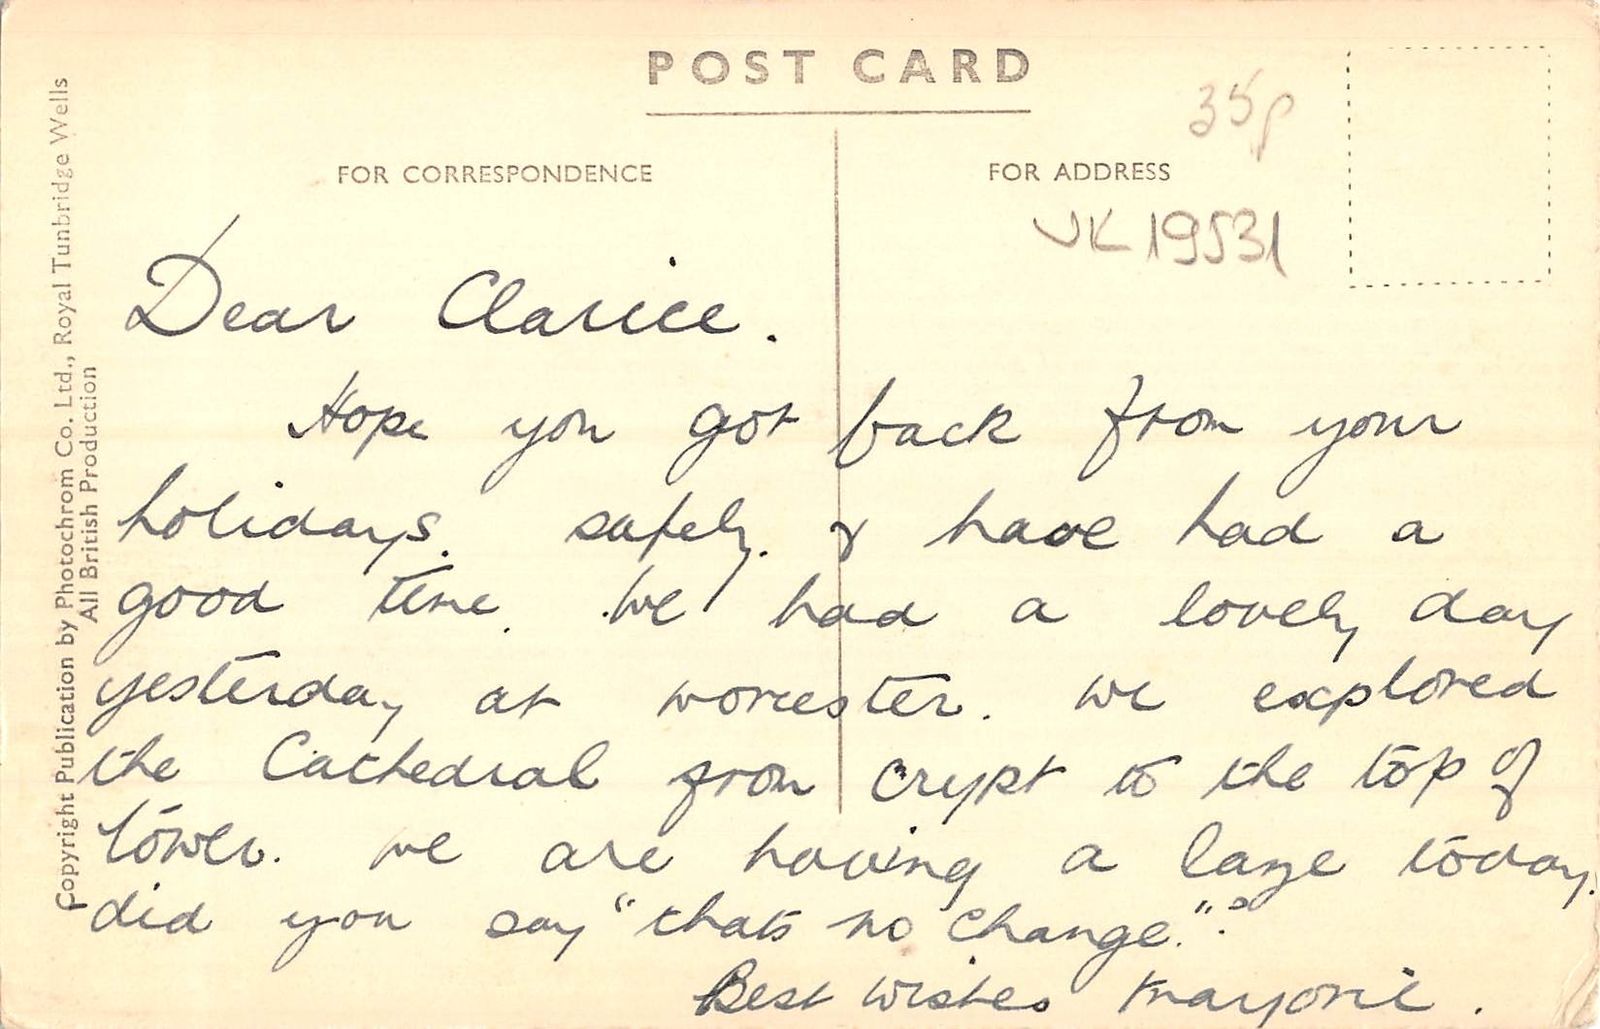 POST CARD
35p
FOR CORRESPONDENCE
FOR ADDRESS
UK 19531
Dear Clarice.
Hope you got back from your
holidays. safely. & have had a
good time. We had a lovely day
yesterday at worcester. we explored
the Cathedral from crypt to the top of
tower. we are having a laze today.
did you say "thats no change."?
Best wishes Marjorie.
Copyright Publication by Photochrom Co., Ltd., Royal Tunbridge Wells
All British Production